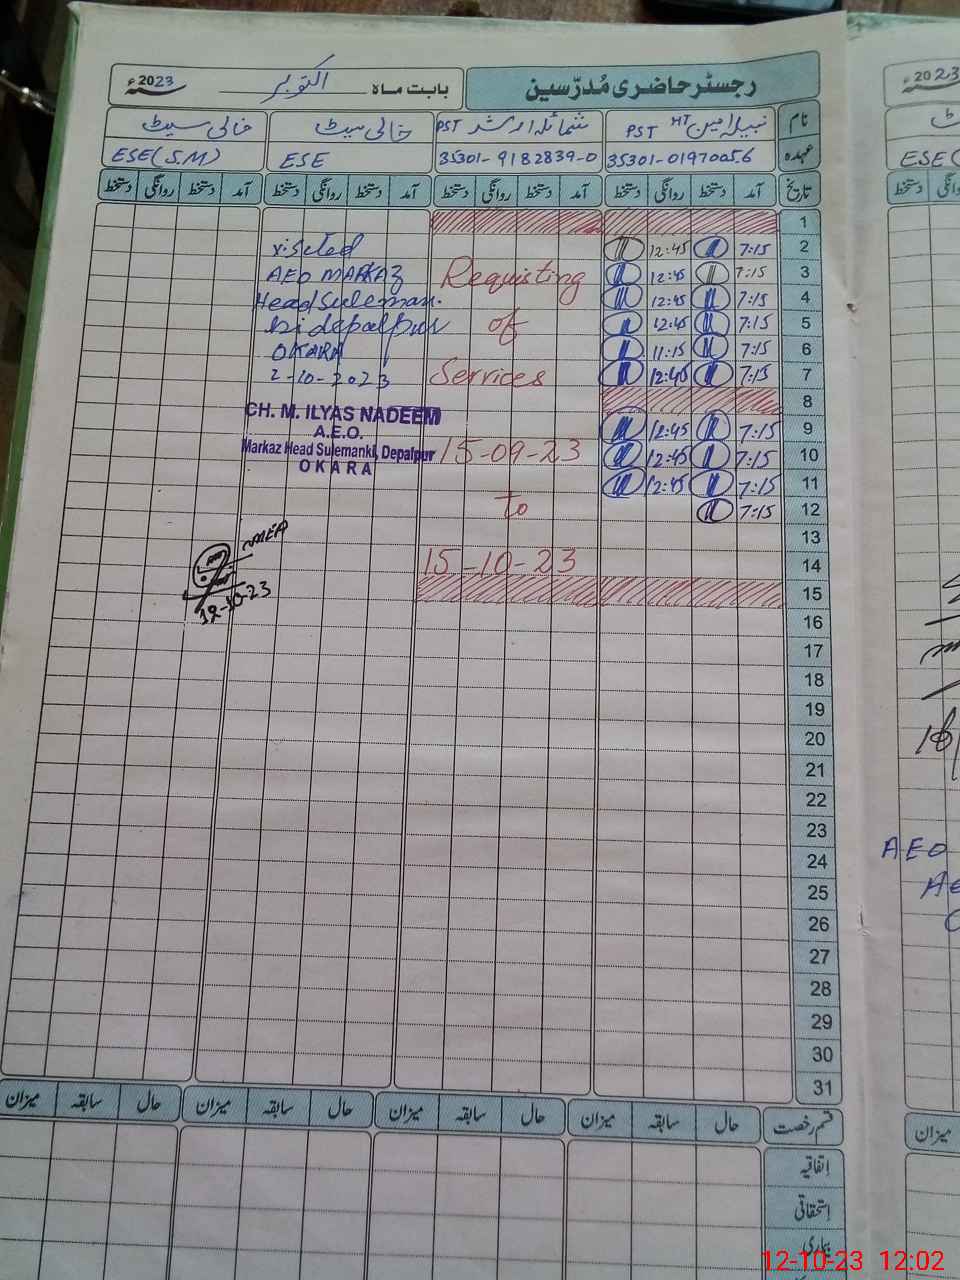 رجسٹر حاضری مُدرّسین
بابت ماہ اکتوبر 2023ء
نام نبیلہ امین HT PST شمائلہ ارشد PST خالی سیٹ خالی سیٹ
عہدہ 35301-0197005.6 35301-9182839-0 ESE ESE (S.M)
تاریخ آمد دستخط روانگی دستخط آمد دستخط روانگی دستخط آمد دستخط روانگی دستخط آمد دستخط روانگی دستخط
1
2 7:15 12:45
3 7:15 12:45
4 7:15 12:45
5 7:15 12:45
6 7:15 11:15
7 7:15 12:45
8
9 7:15 12:45
10 7:15 12:45
11 7:15 12:45
12 7:15
13
14
15
16
17
18
19
20
21
22
23
24
25
26
27
28
29
30
31
Requisting
of
Services
15-09-23
to
15-10-23
visited
AEO MARKAZ
Head Suleman.
ki depalpur
OKARA
2-10-2023
CH. M. ILYAS NADEEM
A.E.O.
Markaz Head Sulemanki, Depalpur
OKARA
MEA
12-10-23
قسم رخصت حال سابقہ میزان حال سابقہ میزان حال سابقہ میزان حال سابقہ میزان
اتفاقیہ
استحقاقی
بیماری
2023
ESE
AEO
میزان
12-10-23 12:02